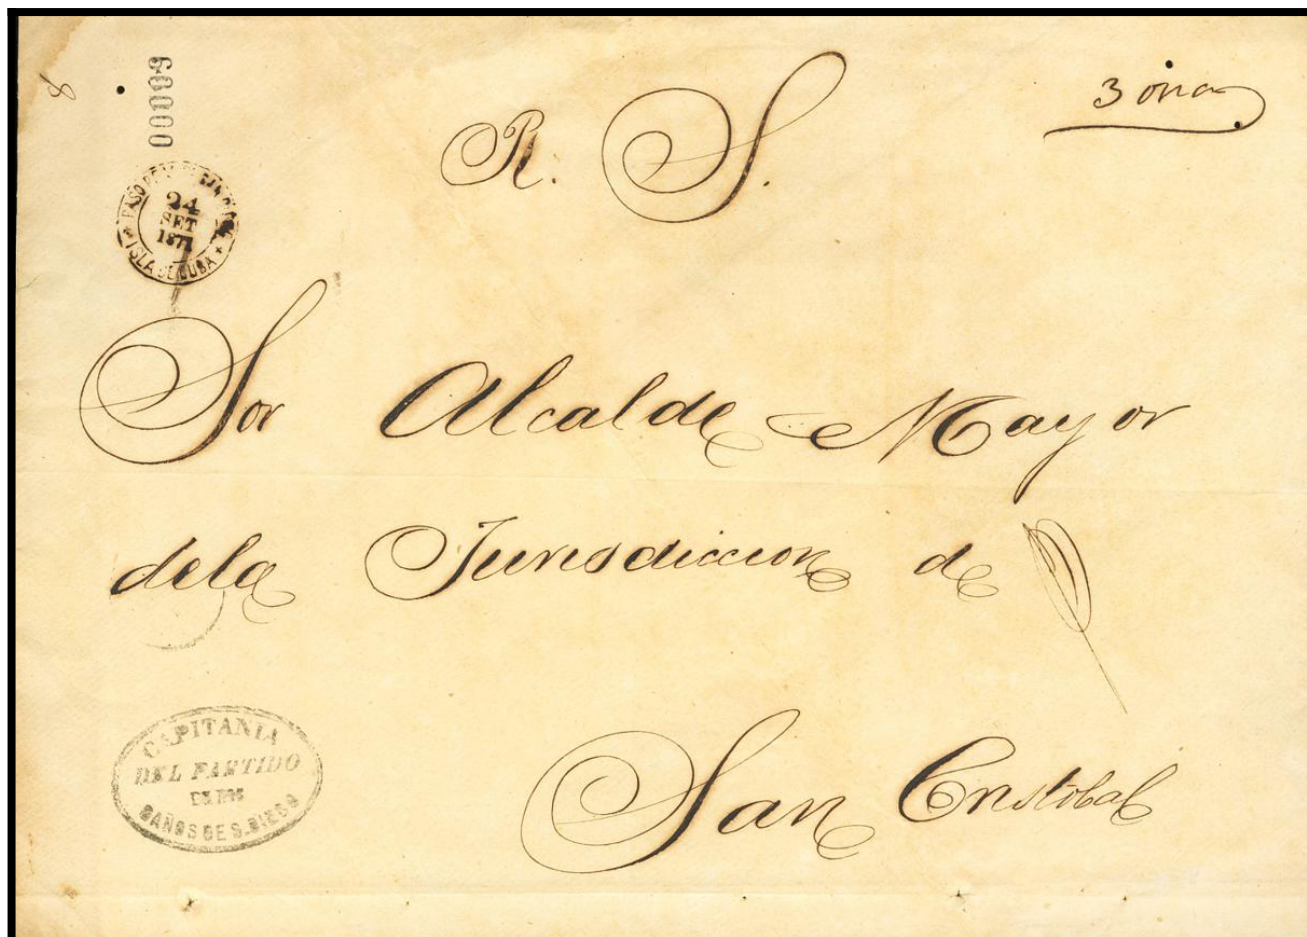 8
00009
R. S.
3 onz
24
SET
1871
ISLA DE CUBA
Sor Alcalde Mayor
dela Jurisdiccion de
San Cristobal
CAPITANIA
DEL PARTIDO
DE LOS
BAÑOS DE S. DIEGO